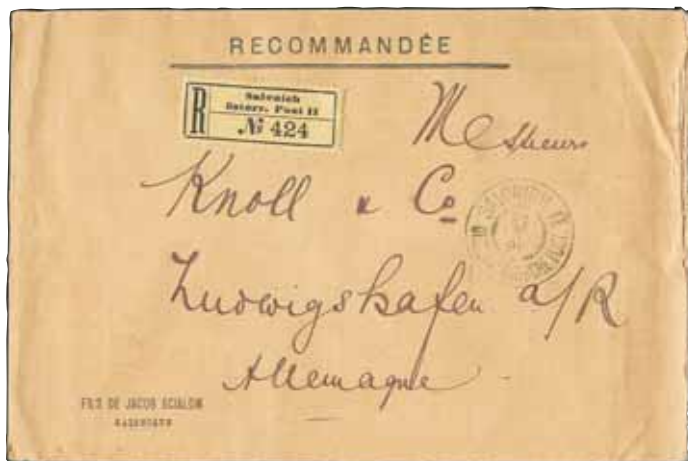 RECOMMANDÉE
R
Salonich
Österr. Post II
№ 424
Messieurs
Knoll & Co
Ludwigshafen a/R
Allemagne
SALONICH II
FILS DE JACOB SCIALOM